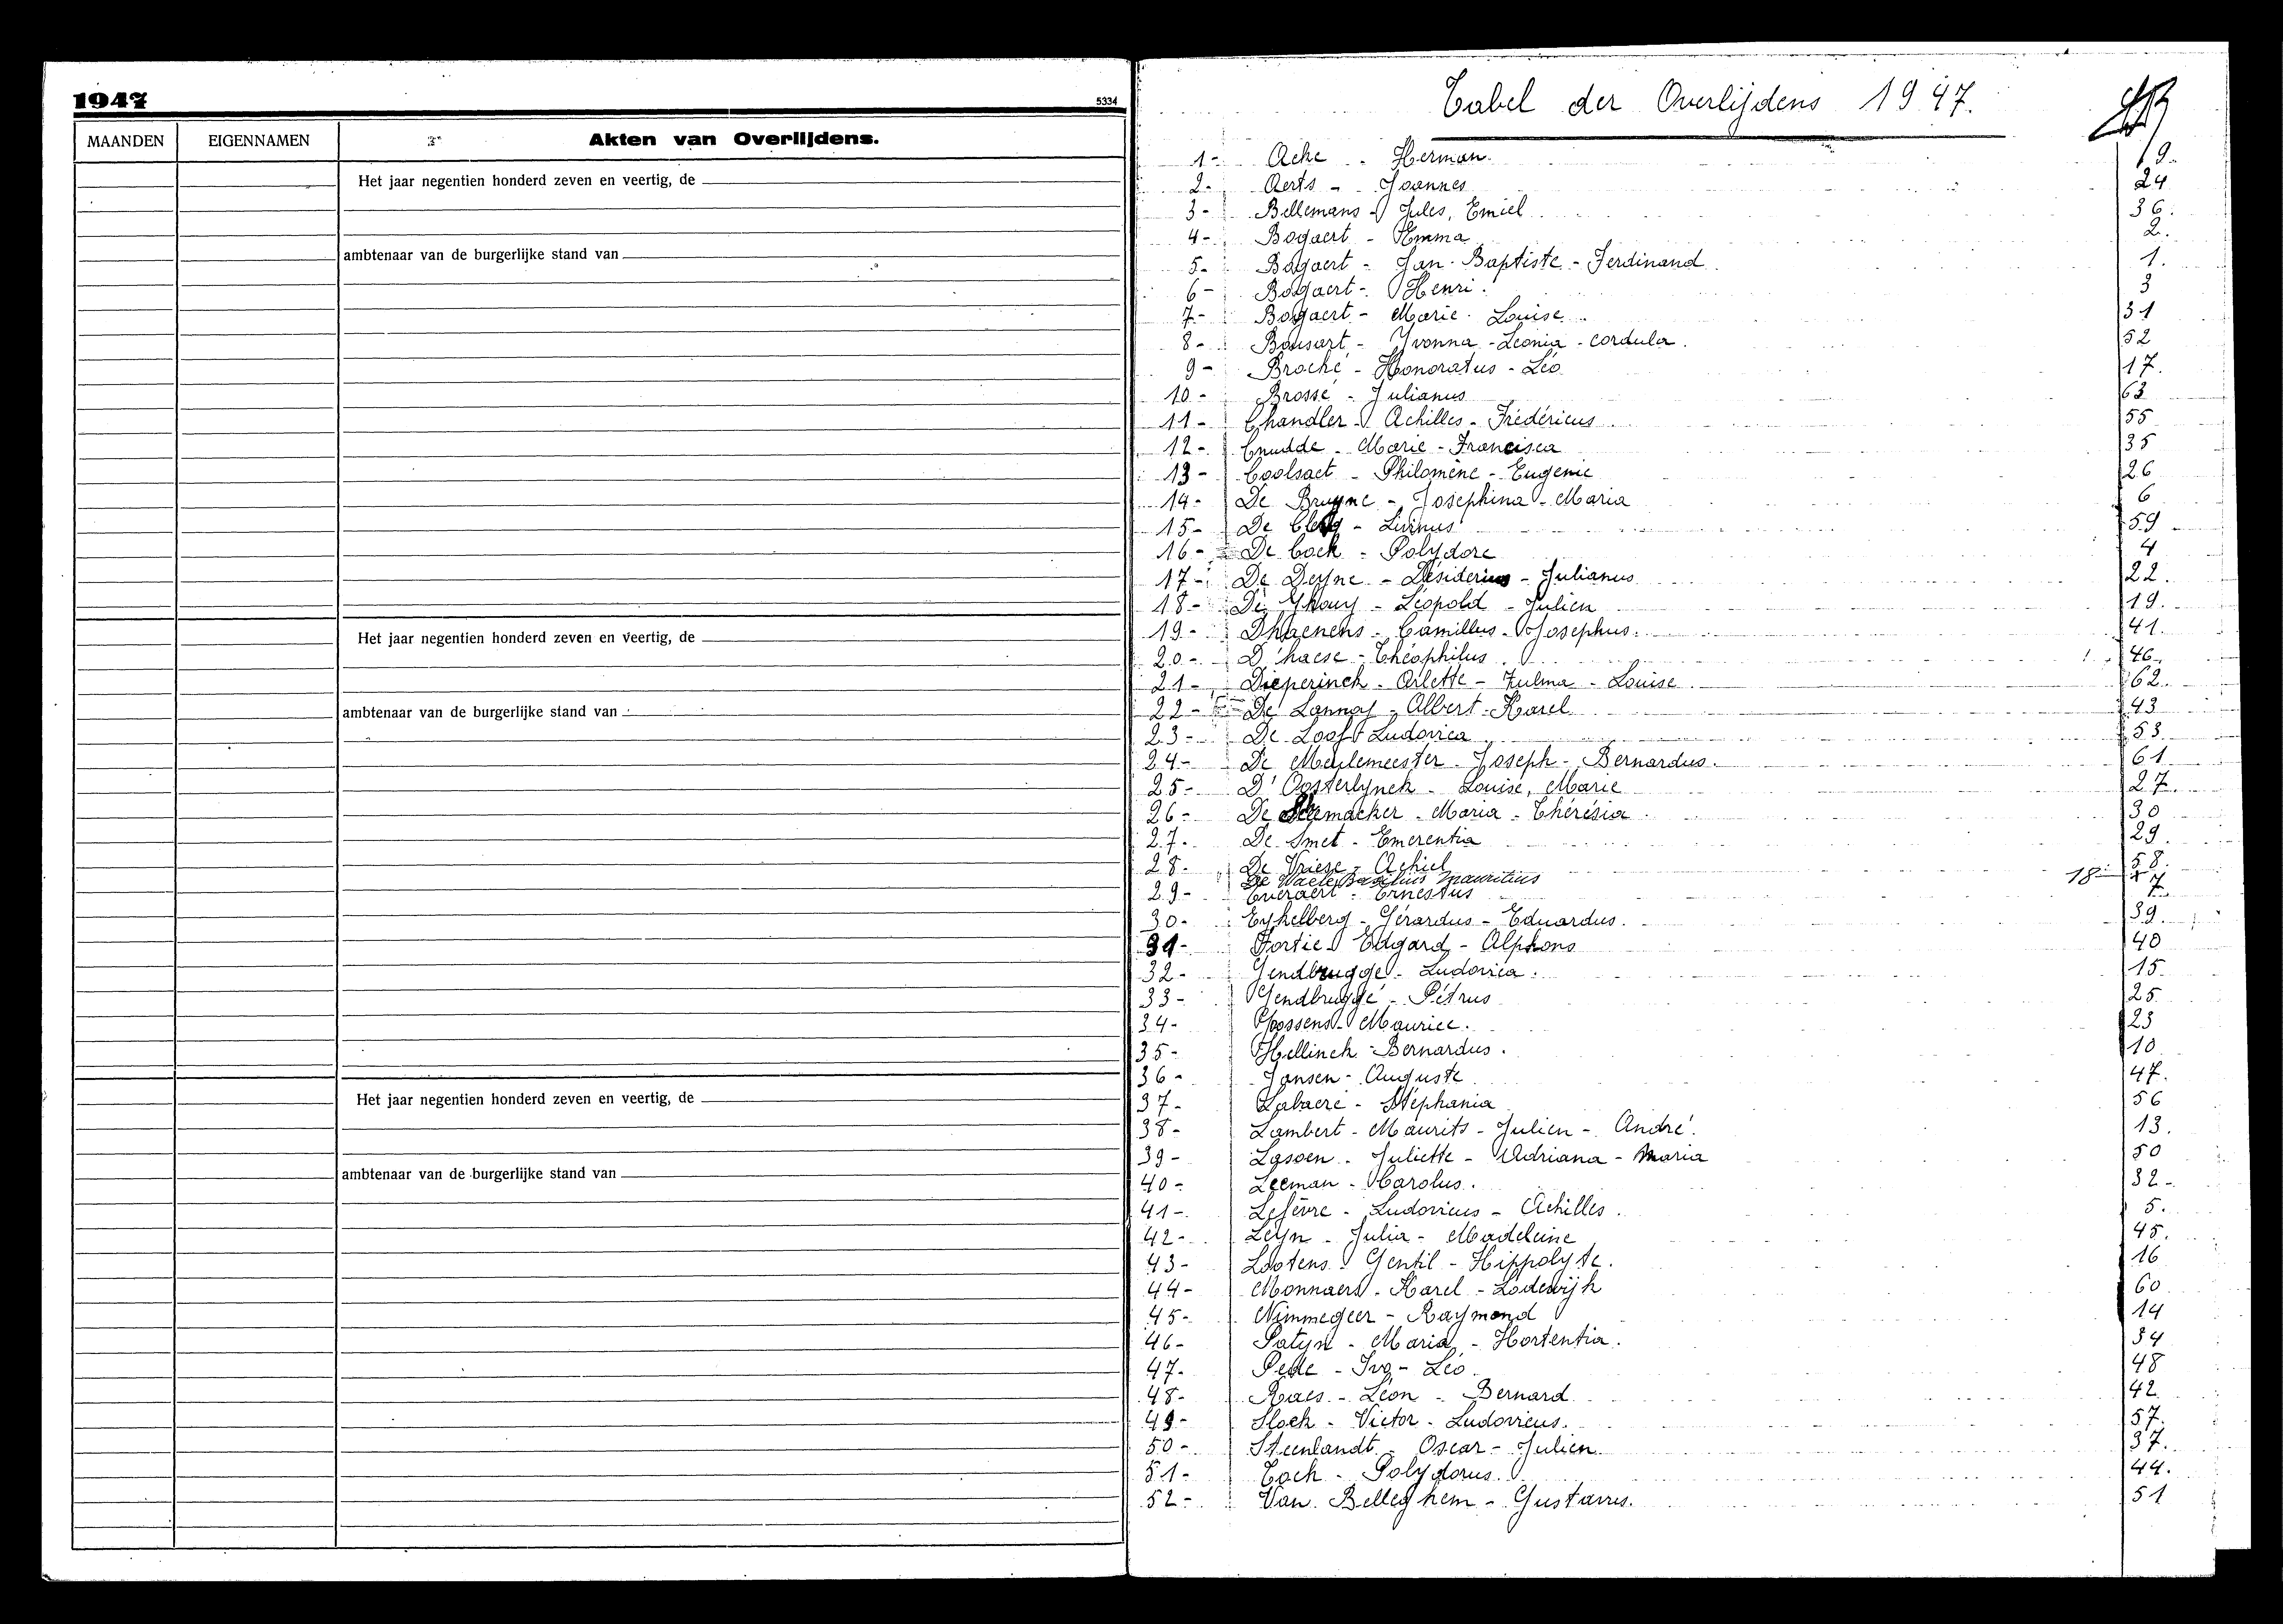 1947
5334
MAANDEN EIGENNAMEN Akten van Overlijdens.
Het jaar negentien honderd zeven en veertig, de
ambtenaar van de burgerlijke stand van
Het jaar negentien honderd zeven en veertig, de
ambtenaar van de burgerlijke stand van
Het jaar negentien honderd zeven en veertig, de
ambtenaar van de burgerlijke stand van
Tabel der Overlijdens 1947.
1- Ache - Herman. 9.
2- Aerts - Joannes 24
3- Bellemans - Jules, Emiel 36.
4- Bogaert - Emma 2.
5- Bogaert - Jan-Baptiste - Ferdinand. 1.
6- Bogaert - Henri. 3
7- Bogaert - Marie-Louise. 31
8- Bousart - Yvonna - Leonia - cordula. 52
9- Broché - Honoratus - Léo 17.
10- Brossé - Julianus 63
11- Chandler - Achilles - Frédéricus 55
12- Cnudde - Marie - Francisca 35
13- Coolsaet - Philomène - Eugenie 26
14- De Bruyne - Josephina - Maria 6
15- De Clerq - Livinus 59
16- De Cock - Polydore 4
17- De Deyne - Désiderius - Julianus 22.
18- De Ghouy - Léopold - Julien 19.
19- Dhaenens - Camillus - Josephus. 41.
20- D'haese - Théophilus. 46.
21- Dieperinck - Arlette - Zulma - Louise. 62.
22- De Lannoy - Albert - Karel 43
23- De Loof - Ludovica 53.
24- De Meulemeester - Joseph - Bernardus. 61
25- D'Oosterlynck - Louise, Marie 27.
26- De maeker - Maria - Thérésia 30
27- De Smet - Emerentia 29.
28- De Vriese - Achiel 58.
De Waele Basilius Mauritius 18
29- Everaert - Ernestus 7.
30- Eykelberg - Gérardus - Eduardus. 39.
31- Fortie - Edgard - Alphons 40
32- Gendbrugge - Ludovica. 15.
33- Gendbrugge - Pétrus 25
34- Goossens - Maurice. 23
35- Hellinck - Bernardus. 10
36- Jansen - Auguste 47.
37- Labaere - Stéphania 56
38- Lambert - Maurits - Julien - André. 13.
39- Lassen - Juliette - Adriana - Maria 50
40- Leeman - Carolus. 32-
41- Lefèvre - Ludovicus - Achilles. 5.
42- Leyn - Julia - Madeleine 45.
43- Lootens - Gentil - Hippolyte. 16
44- Monnaers - Karel - Lodewijk 60
45- Nimmegeer - Raymond 14
46- Patyn - Maria - Hortentia. 34
47- Pede - Ivo - Léo. 48
48- Raes - Léon - Bernard. 42
49- Slock - Victor - Ludovicus. 57.
50- Steenlandt - Oscar - Julien. 37.
51- Tack - Polydorus. 44.
52- Van Belleghem - Gustavus. 51